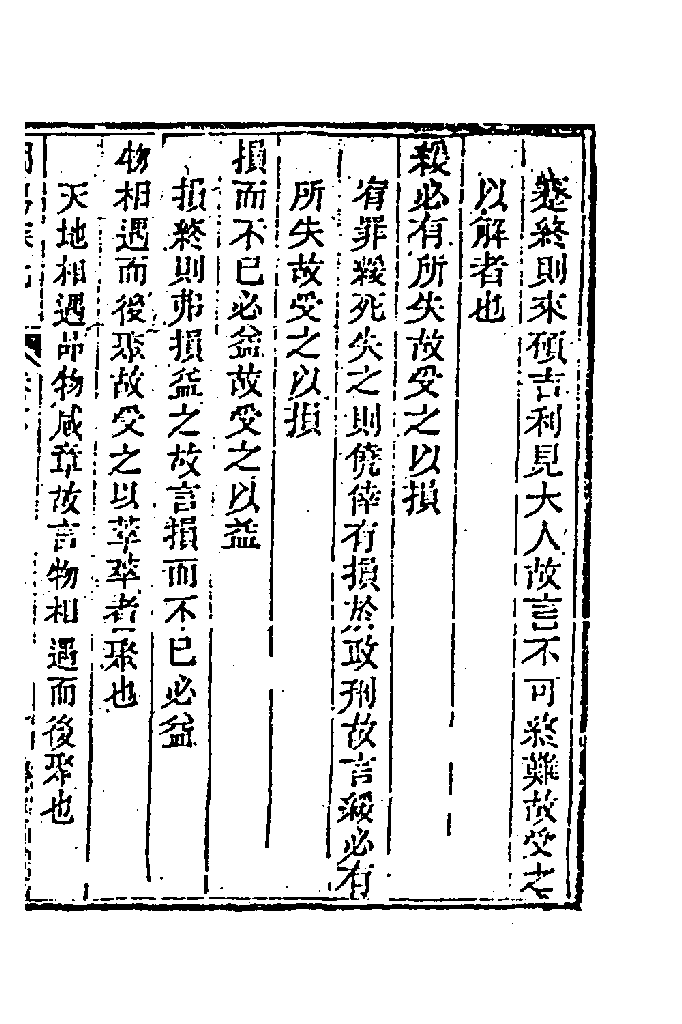 蹇終則來碩吉利見大人故言不可終難故受之
以解者也
緩必有所失故受之以損
宥罪緩死失之則僥倖有損於政刑故言緩必有
所失故受之以損
損而不已必益故受之以益
損終則弗損益之故言損而不已必益
物相遇而後聚故受之以萃萃者聚也
天地相遇品物咸章故言物相遇而後聚也